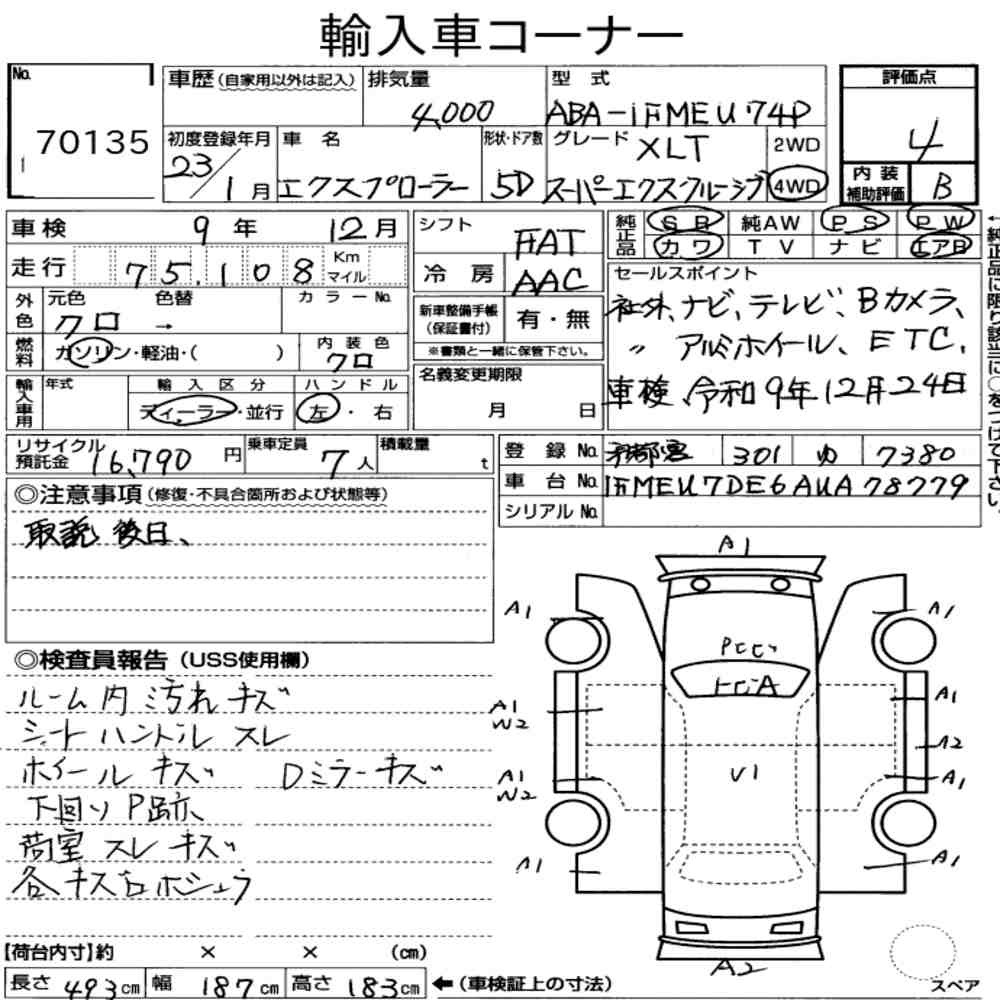 輸入車コーナー
No. 70135
車歴(自家用以外は記入) 排気量 4,000 型式 ABA-1FMEU74P 評価点 4
初度登録年月 23/1月 車名 エクスプローラー 形状・ドア数 5D グレード XLT スーパーエクスクルーシブ 2WD 4WD 内装補助評価 B
車検 9年 12月 シフト FAT 純正品 SR 純AW PS PW
カワ TV ナビ エアB
走行 75,108 Km マイル 冷房 AAC
←純正品に限り該当に○をつけて下さい。
外色 元色 クロ 色替 → カラーNo.
燃料 ガソリン・軽油・( ) 内装色 クロ
新車整備手帳(保証書付) 有・無
※書類と一緒に保管下さい。
セールスポイント
社外、ナビ、テレビ、Bカメラ、
〃 アルミホイール、ETC、
車検、令和9年12月24日
輸入車用 年式 輸入区分 ディーラー・並行 ハンドル 左・右
名義変更期限 月 日
リサイクル預託金 16,790円 乗車定員 7人 積載量 t
登録No. 宇都宮 301 ゆ 7380
車台No. 1FMEU7DE6AUA78779
シリアルNo.
◎注意事項(修復・不具合箇所および状態等)
取説 後日、
◎検査員報告(USS使用欄)
ルーム内 汚れ キズ
シート ハンドル スレ
ホイール キズ Dミラーキズ
下回り P跡
荷室 スレ キズ
A1
A1 A1
A1 W2
A1 W2
A1
Pビビ
トビA
U1
A1
A2
A1
A1
A2
【荷台内寸】約 × × (cm)
長さ 493cm 幅 187cm 高さ 183cm ←(車検証上の寸法)
スペア